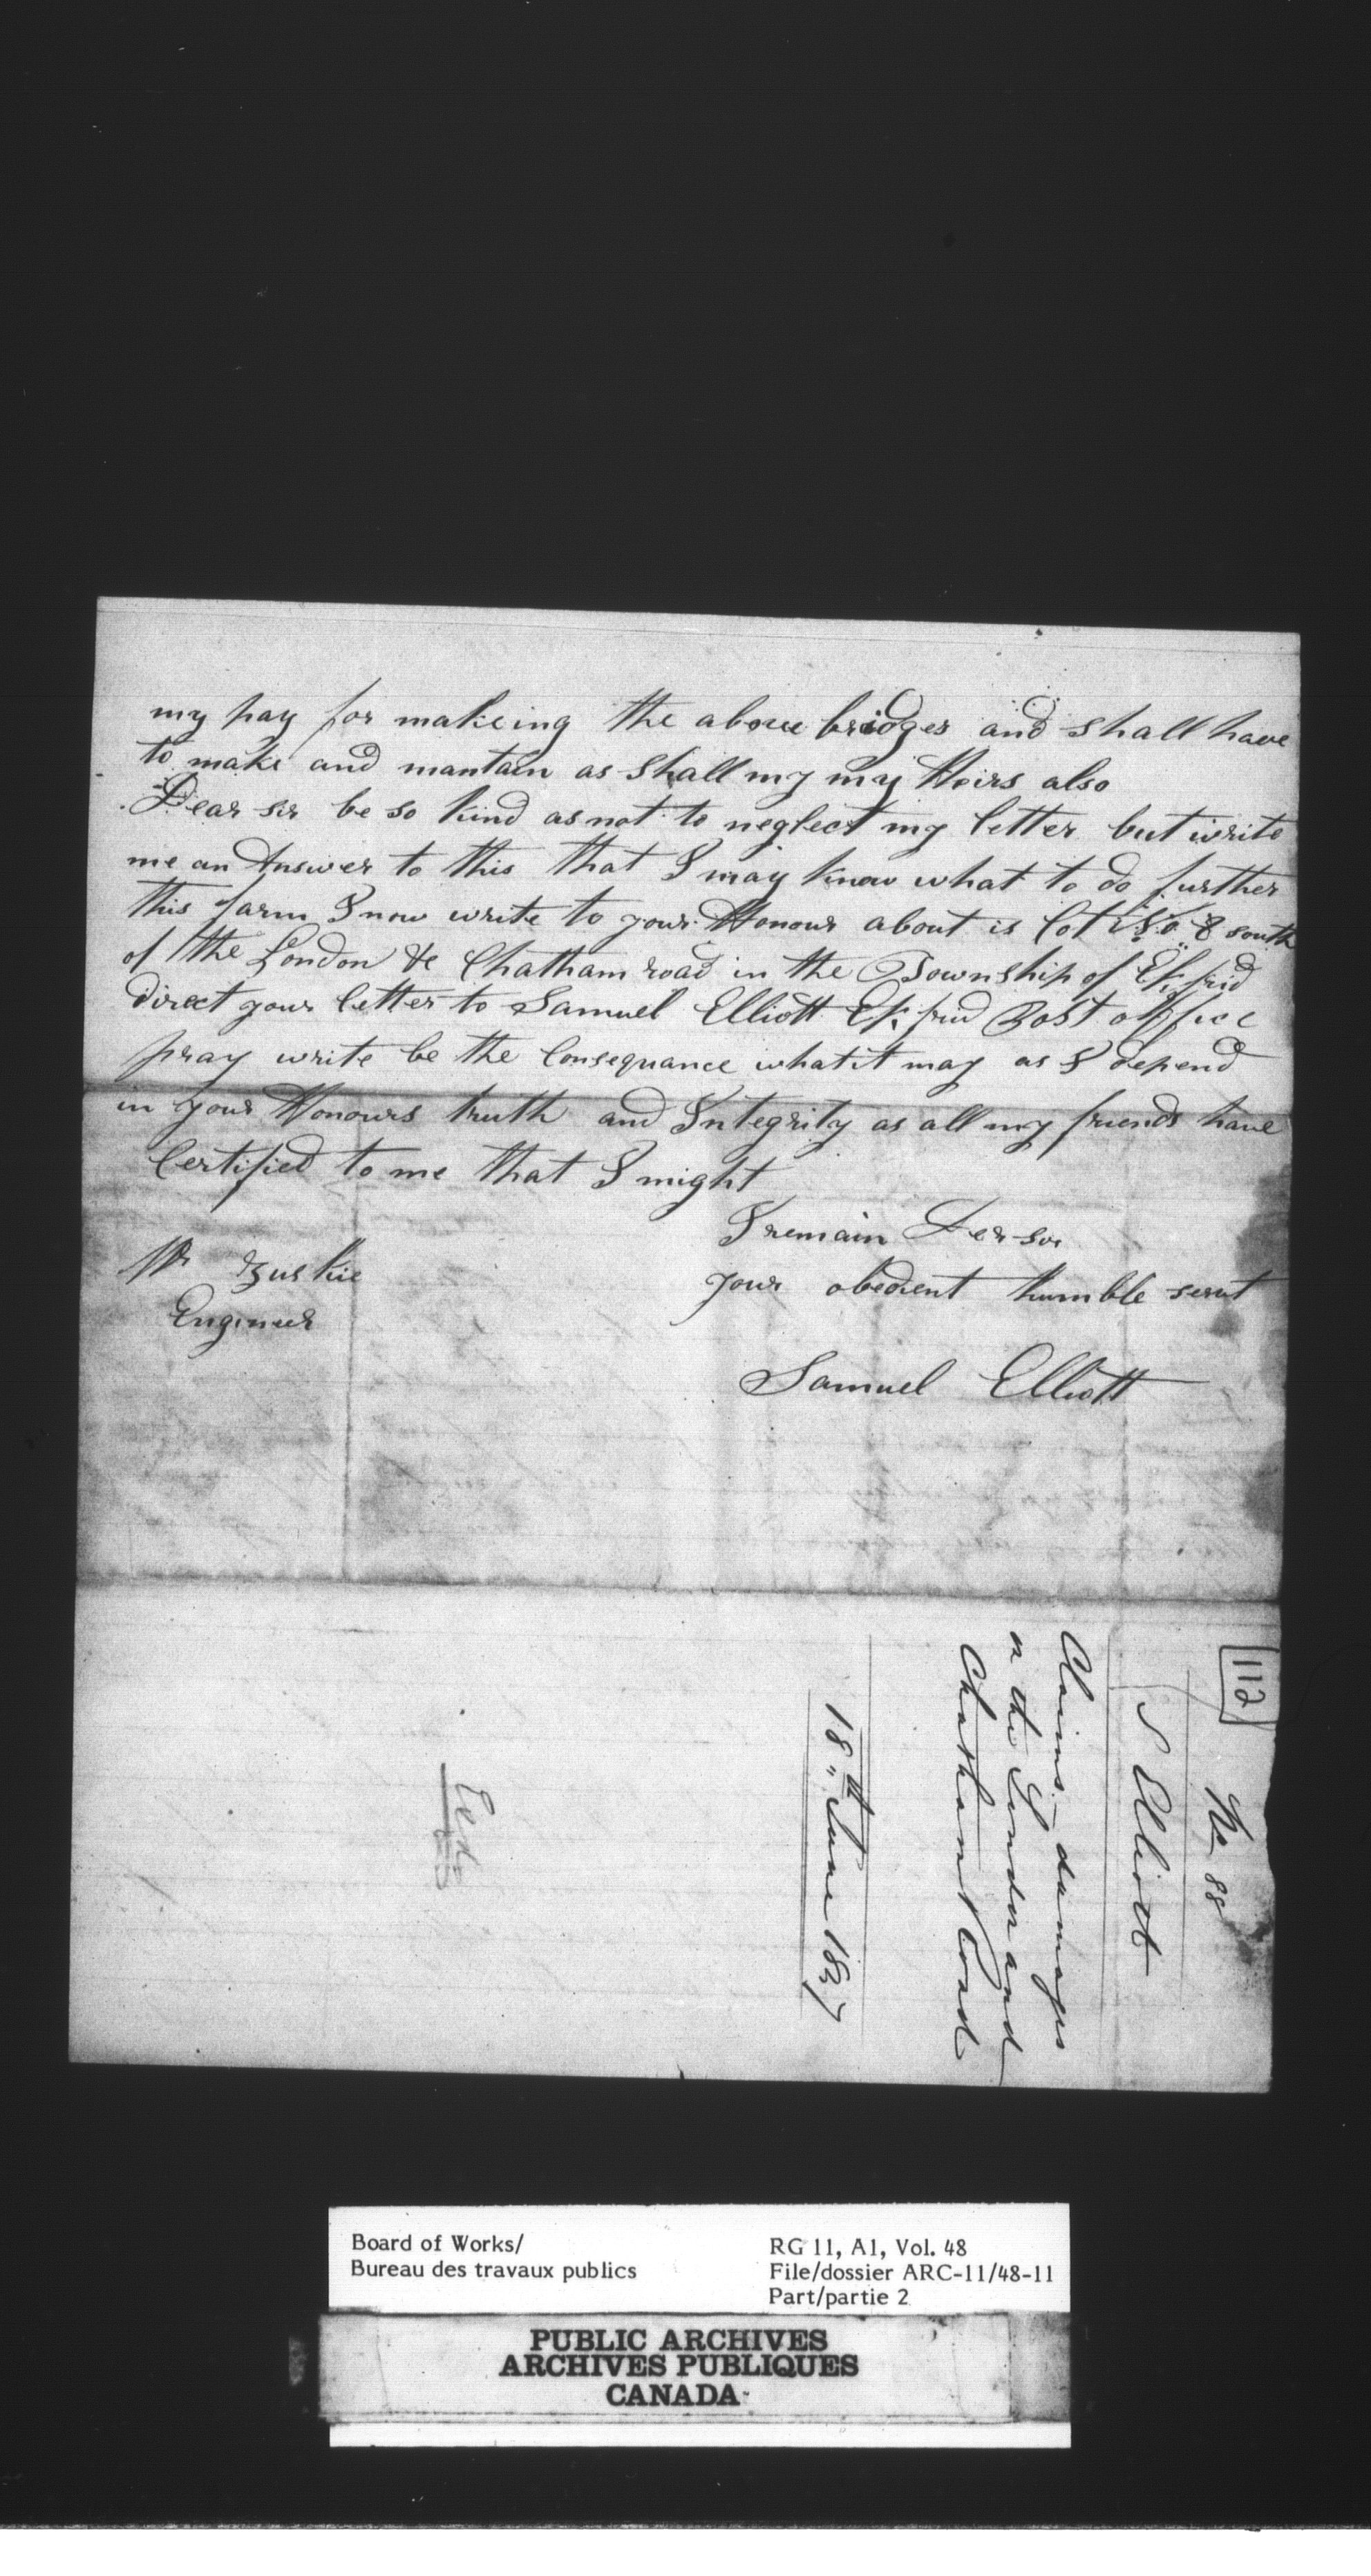 my pay for makeing the above bridges and shall have
to make and mantain as shall my my Heirs also
Dear sir be so kind as not to neglect my letter but write
me an Answer to this that I may know what to do further
this farm I now write to your Honour about is lot No 8 south
of the London & Chatham road in the Township of Ekfrid
direct your letter to Samuel Elliott Ekfrid Post office
pray write be the Consequance what it may as I depend
in your Honours truth and Integrity as all my friends have
Certified to me that I might
I remain Der sir
your obedient humble servt
Mr
Engineer
Samuel Elliott
112
No 88
S Elliott
Claims damages
on the London and
Chatham Road
18th June 184
Board of Works/
Bureau des travaux publics
RG 11, A1, Vol. 48
File/dossier ARC-11/48-11
Part/partie 2
PUBLIC ARCHIVES
ARCHIVES PUBLIQUES
CANADA